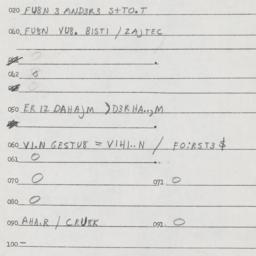 020 FU8N 3 AND3RS S+TO.T
040 FU8N VU8. BISTI / ZAJTEC
042 0
050 ER IZ DAHAJM ) D3RHA..JM
060 VI.N GESTU8 = VIHI..N / FO:RST3$
061 0
070 0 071 0
080 0
090 AHA.R / CRU8K 091 0
100 -